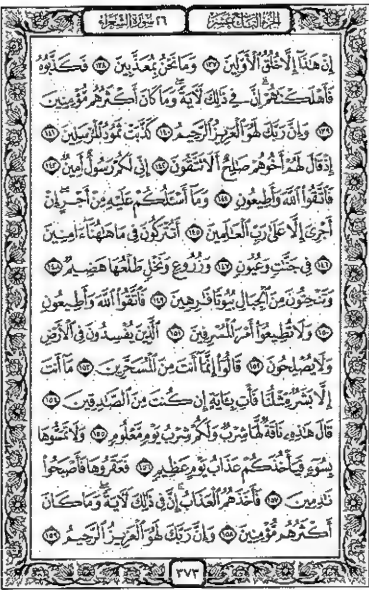 الجزء التاسع عشر
٢٦ سورة الشعراء
إِنْ هَٰذَآ إِلَّا خُلُقُ ٱلْأَوَّلِينَ ١٣٧ وَمَا نَحْنُ بِمُعَذَّبِينَ ١٣٨ فَكَذَّبُوهُ
فَأَهْلَكْنَٰهُمْ إِنَّ فِى ذَٰلِكَ لَـَٔايَةً وَمَا كَانَ أَكْثَرُهُم مُّؤْمِنِينَ
١٣٩ وَإِنَّ رَبَّكَ لَهُوَ ٱلْعَزِيزُ ٱلرَّحِيمُ ١٤٠ كَذَّبَتْ ثَمُودُ ٱلْمُرْسَلِينَ ١٤١
إِذْ قَالَ لَهُمْ أَخُوهُمْ صَٰلِحٌ أَلَا تَتَّقُونَ ١٤٢ إِنِّى لَكُمْ رَسُولٌ أَمِينٌ ١٤٣
فَٱتَّقُوا۟ ٱللَّهَ وَأَطِيعُونِ ١٤٤ وَمَآ أَسْـَٔلُكُمْ عَلَيْهِ مِنْ أَجْرٍ إِنْ
أَجْرِىَ إِلَّا عَلَىٰ رَبِّ ٱلْعَٰلَمِينَ ١٤٥ أَتُتْرَكُونَ فِى مَا هَٰهُنَآ ءَامِنِينَ
١٤٦ فِى جَنَّٰتٍ وَعُيُونٍ ١٤٧ وَزُرُوعٍ وَنَخْلٍ طَلْعُهَا هَضِيمٌ ١٤٨
وَتَنْحِتُونَ مِنَ ٱلْجِبَالِ بُيُوتًا فَٰرِهِينَ ١٤٩ فَٱتَّقُوا۟ ٱللَّهَ وَأَطِيعُونِ
١٥٠ وَلَا تُطِيعُوٓا۟ أَمْرَ ٱلْمُسْرِفِينَ ١٥١ ٱلَّذِينَ يُفْسِدُونَ فِى ٱلْأَرْضِ
وَلَا يُصْلِحُونَ ١٥٢ قَالُوٓا۟ إِنَّمَآ أَنتَ مِنَ ٱلْمُسَحَّرِينَ ١٥٣ مَآ أَنتَ
إِلَّا بَشَرٌ مِّثْلُنَا فَأْتِ بِـَٔايَةٍ إِن كُنتَ مِنَ ٱلصَّٰدِقِينَ ١٥٤
قَالَ هَٰذِهِۦ نَاقَةٌ لَّهَا شِرْبٌ وَلَكُمْ شِرْبُ يَوْمٍ مَّعْلُومٍ ١٥٥ وَلَا تَمَسُّوهَا
بِسُوٓءٍ فَيَأْخُذَكُمْ عَذَابُ يَوْمٍ عَظِيمٍ ١٥٦ فَعَقَرُوهَا فَأَصْبَحُوا۟
نَٰدِمِينَ ١٥٧ فَأَخَذَهُمُ ٱلْعَذَابُ إِنَّ فِى ذَٰلِكَ لَـَٔايَةً وَمَا كَانَ
أَكْثَرُهُم مُّؤْمِنِينَ ١٥٨ وَإِنَّ رَبَّكَ لَهُوَ ٱلْعَزِيزُ ٱلرَّحِيمُ ١٥٩
٣٧٣